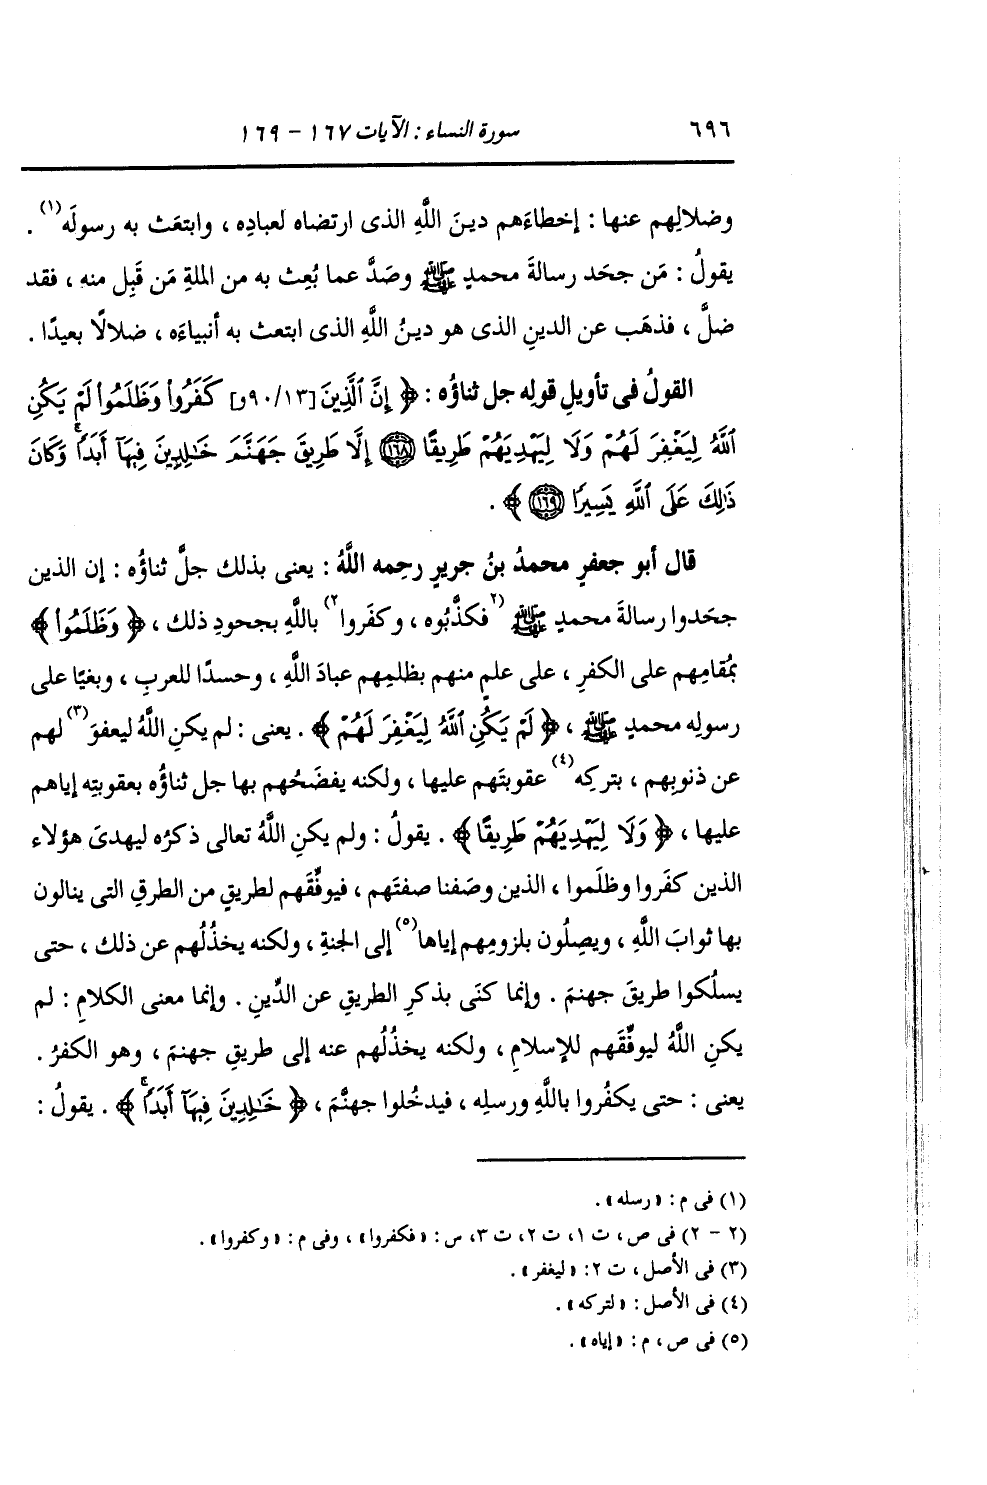 ٦٩٦ سورة النساء : الآيات ١٦٧ - ١٦٩
وضلالِهم عنها : إخطاءَهم دينَ اللَّهِ الذى ارتضاه لعبادِه ، وابتعَث به رسولَه(١) .
يقولُ : مَن جحَد رسالةَ محمدٍ ﷺ وصَدَّ عما بُعِث به من الملةِ مَن قَبِل منه ، فقد
ضلَّ ، فذهَب عن الدينِ الذى هو دينُ اللَّهِ الذى ابتعث به أنبياءَه ، ضلالًا بعيدًا .
القولُ فى تأويلِ قولِه جل ثناؤُه : ﴿ إِنَّ ٱلَّذِينَ [١٣/ ٩٠و] كَفَرُوا۟ وَظَلَمُوا۟ لَمْ يَكُنِ
ٱللَّهُ لِيَغْفِرَ لَهُمْ وَلَا لِيَهْدِيَهُمْ طَرِيقًا ﴿١٦٨﴾ إِلَّا طَرِيقَ جَهَنَّمَ خَـٰلِدِينَ فِيهَآ أَبَدًاۚ وَكَانَ
ذَٰلِكَ عَلَى ٱللَّهِ يَسِيرًا ﴿١٦٩﴾ ﴾ .
قال أبو جعفرٍ محمدُ بنُ جريرٍ رحِمه اللَّهُ : يعنى بذلك جلَّ ثناؤُه : إن الذين
جحَدوا رسالةَ محمدٍ ﷺ (٢فكذَّبُوه ، وكفَروا٢) باللَّهِ بجحودِ ذلك ، ﴿ وَظَلَمُوا۟ ﴾
بمُقامِهم على الكفرِ ، على علمٍ منهم بظلمِهم عبادَ اللَّهِ ، وحسدًا للعربِ ، وبغيًا على
رسولِه محمدٍ ﷺ ، ﴿ لَمْ يَكُنِ ٱللَّهُ لِيَغْفِرَ لَهُمْ ﴾ . يعنى : لم يكنِ اللَّهُ ليعفوَ(٣) لهم
عن ذنوبِهم ، بتركِه(٤) عقوبتَهم عليها ، ولكنه يفضَحُهم بها جل ثناؤُه بعقوبتِه إياهم
عليها ، ﴿ وَلَا لِيَهْدِيَهُمْ طَرِيقًا ﴾ . يقولُ : ولم يكنِ اللَّهُ تعالى ذكرُه ليهدىَ هؤلاء
الذين كفَروا وظلَموا ، الذين وصَفنا صفتَهم ، فيوفِّقَهم لطريقٍ من الطرقِ التى ينالون
بها ثوابَ اللَّهِ ، ويصِلُون بلزومِهم إياها(٥) إلى الجنةِ ، ولكنه يخذُلُهم عن ذلك ، حتى
يسلُكوا طريقَ جهنمَ . وإنما كنَى بذكرِ الطريقِ عن الدِّينِ . وإنما معنى الكلامِ : لم
يكنِ اللَّهُ ليوفِّقَهم للإسلامِ ، ولكنه يخذُلُهم عنه إلى طريقِ جهنمَ ، وهو الكفرُ .
يعنى : حتى يكفُروا باللَّهِ ورسلِه ، فيدخُلوا جهنَّمَ ، ﴿ خَـٰلِدِينَ فِيهَآ أَبَدًاۚ ﴾ . يقولُ :
(١) فى م : « رسله » .
(٢ - ٢) فى ص ، ت ١، ت ٢، ت ٣، س : « فكفروا » ، وفى م : « وكفروا » .
(٣) فى الأصل ، ت ٢: « ليغفر » .
(٤) فى الأصل : « لتركه » .
(٥) فى ص ، م : « إياه » .